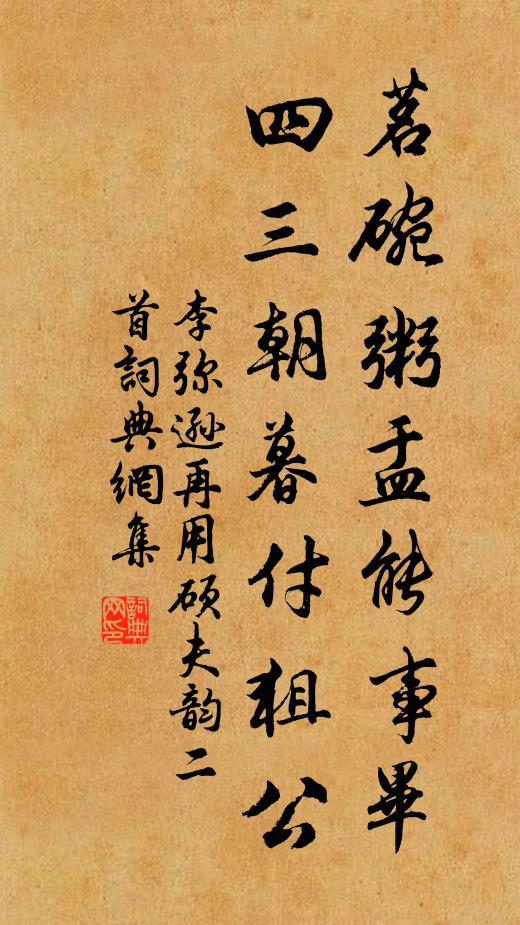 茗碗粥盂能事畢
四三朝暮付狙公
李弥遜再用硕夫韵二
首詞典網集
詞典
网印